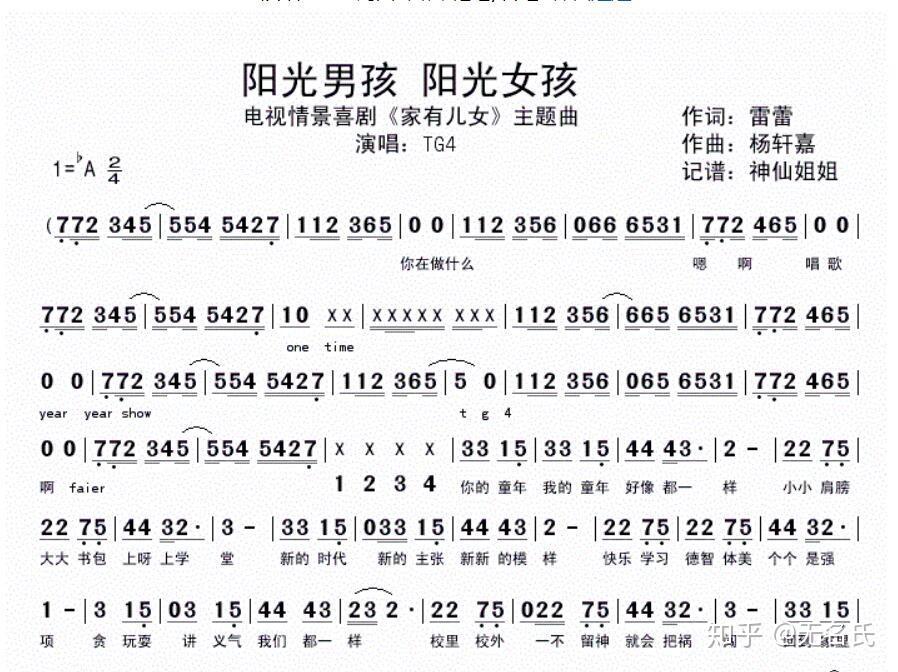 阳光男孩 阳光女孩
电视情景喜剧《家有儿女》主题曲
作词：雷蕾
演唱：TG4
作曲：杨轩嘉
1=♭A 2/4
记谱：神仙姐姐
(772 345|554 5427|112 365|0 0|112 356|066 6531|772 465|0 0|
你在做什么 嗯 啊 唱歌
772 345|554 5427|10 XX|XXXXX XXX|112 356|665 6531|772 465|
one time
0 0|772 345|554 5427|112 365|5 0|112 356|065 6531|772 465|
year year show t g 4
0 0|772 345|554 5427|X X X X|33 15|33 15|44 43·|2 -|22 75|
啊 faier 1 2 3 4 你的 童年 我的 童年 好像 都一 样 小小 肩膀
22 75|44 32·|3 -|33 15|033 15|44 43|2 -|22 75|22 75|44 32·|
大大 书包 上呀 上学 堂 新的 时代 新的 主张 新新 的模 样 快乐 学习 德智 体美 个个 是强
1 -|3 15|03 15|44 43|23 2·|22 75|022 75|44 32·|3 -|33 15|
项 贪 玩耍 讲 义气 我们 都一 样 校里 校外 一不 留神 就会 把祸 闯 回到
知乎 @无名氏